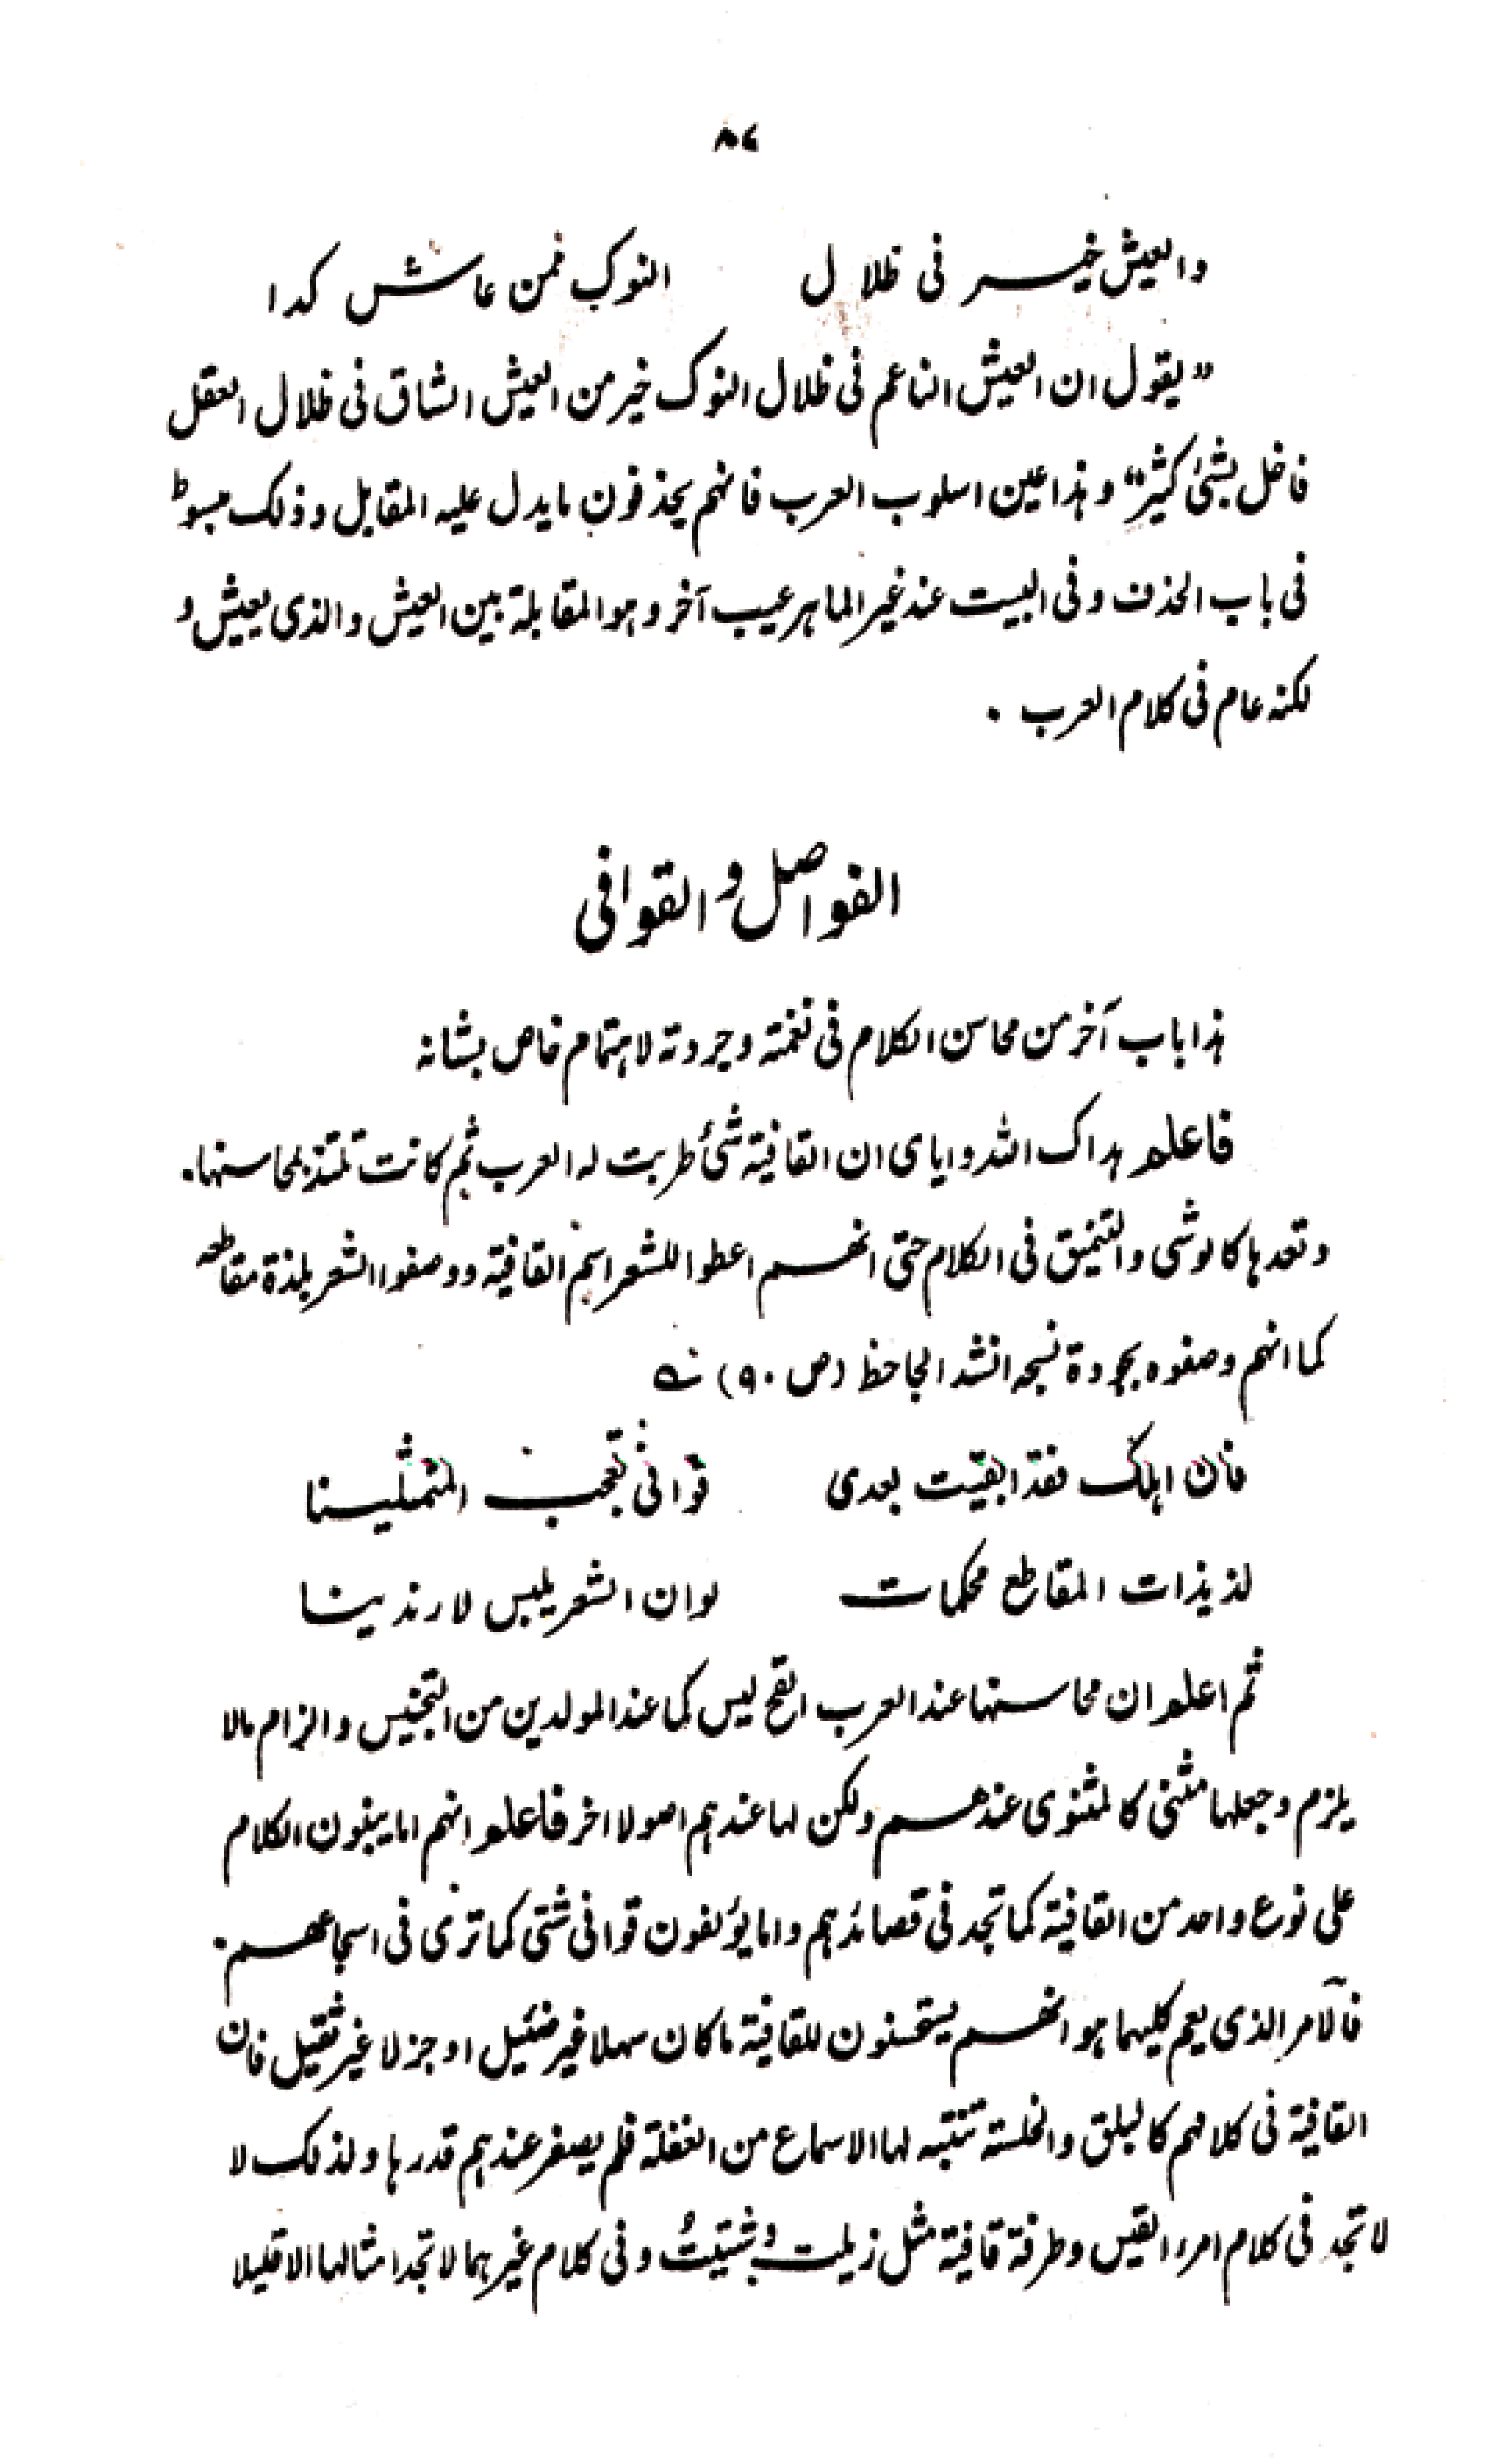 ٨٤
والعيش خير فى ظلال النوك فمن عاش كدا
”يقول ان العيش الناعم فى ظلال النوك خير من العيش الشاق فى ظلال العقل
فاخل بشئ كثير“ وهذا عين اسلوب العرب فانهم يحذفون ما يدل عليه المقابل وذلك مبسوط
فى باب الحذف وفى البيت عند غير الماهر عيب آخر وهو المقابلة بين العيش والذى يعيش و
لكنه عام فى كلام العرب .
الفواصل والقوافى
هذا باب آخر من محاسن الكلام فى نغمته وجردته لاهتمام خاص بشانه
فاعلم هداك الله واياى ان القافية شئ طربت له العرب ثم كانت تلتذ بمحاسنها.
وتعدها كالوشى والتنميق فى الكلام حتى انهم اعطوا للشعر اسم القافية ووصفوا الشعر بلذة مقاطعه
كما انهم وصفوه بجودة نسجه انشد الجاحظ (ص ٩٠)
فان اهلك فقد ابقيت بعدى قوافى تعجب المتمثلينا
لذيذات المقاطع محكمات لو ان الشعر يلبس لارتدينا
ثم اعلم ان محاسنها عند العرب القح ليس كما عند المولدين من التجنيس والزام مالا
يلزم وجعلها مثنى كالمثنوى عندهم ولكن لها عندهم اصولا اخر فاعلم انهم اما يبنون الكلام
على نوع واحد من القافية كما تجد فى قصائدهم واما يؤلفون قوافى شتى كما ترى فى اسجاعهم.
فالامر الذى يعم كليهما هو انهم يستحسنون للقافية ما كان سهلا غير ضئيل او جزلا غير ثقيل فان
القافية فى كلامهم كالبلق والخلسة تنتبه لها الاسماع من الغفلة فلم يصغر عندهم قدرها ولذلك لا
لا تجد فى كلام امرء القيس وطرفة قافية مثل زيلت وشتيت وفى كلام غيرهما لا تجد امثالها الا قليلا